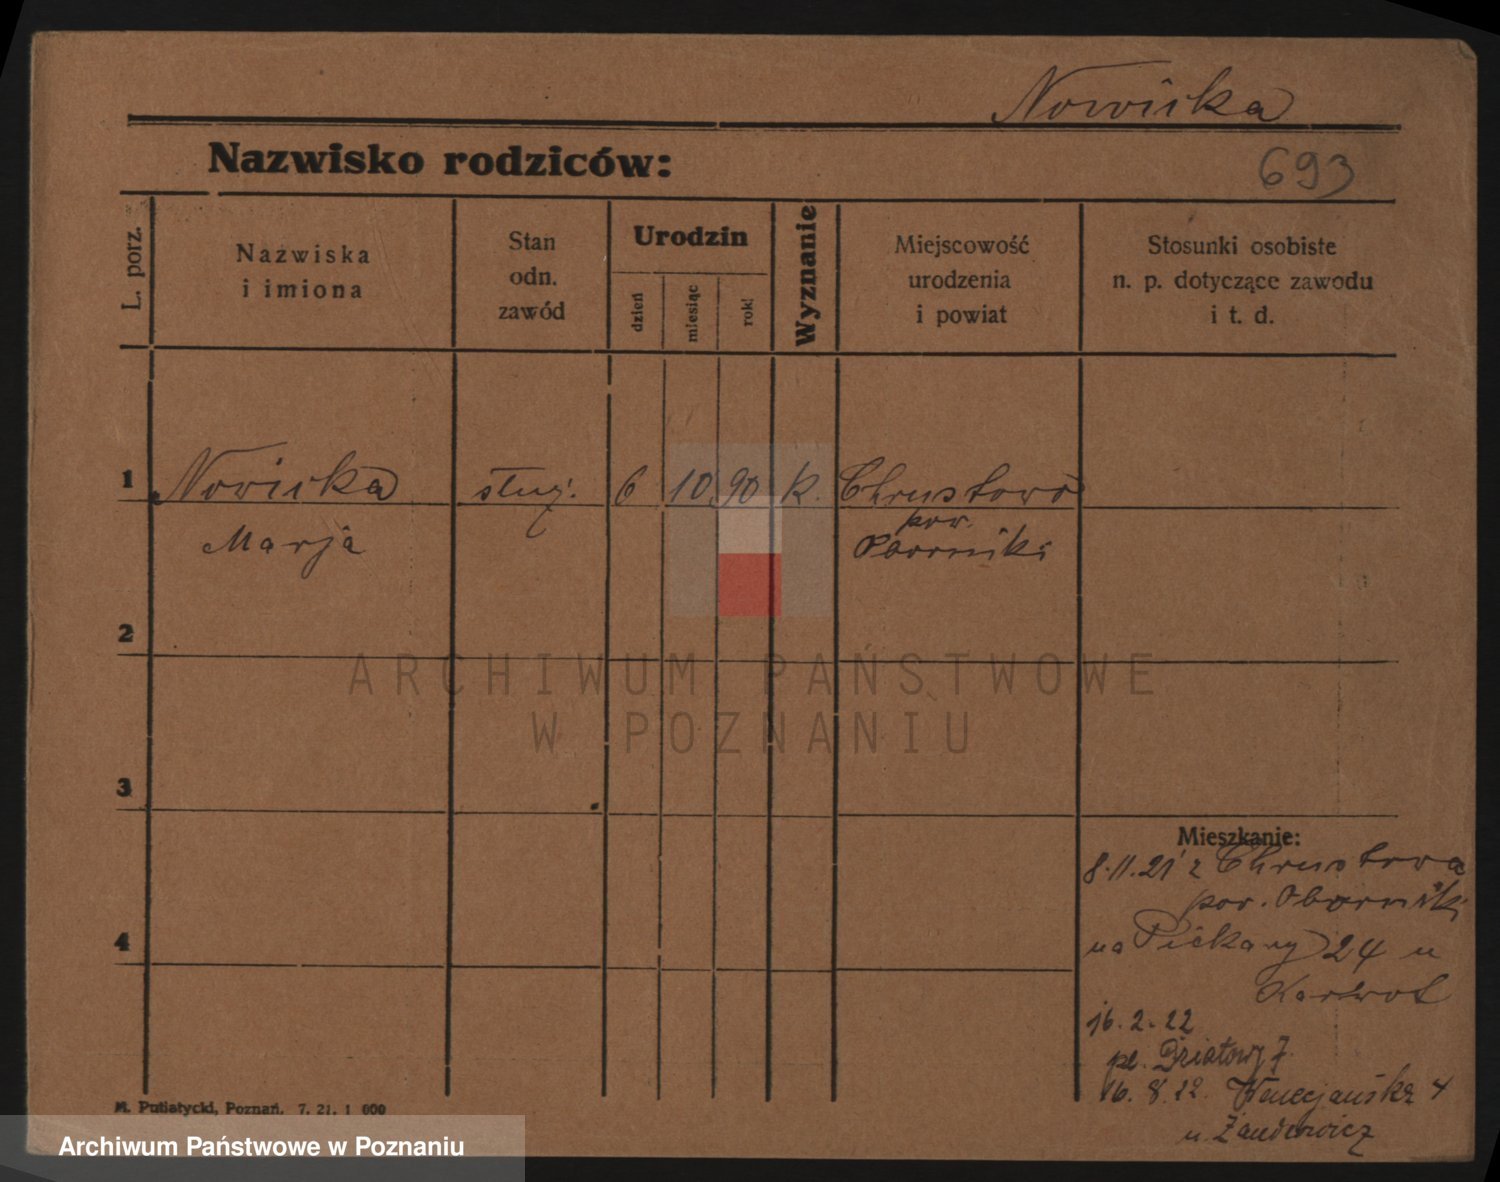 Nowicka
Nazwisko rodziców:
693
L. porz.
Nazwiska
i imiona
Stan
odn.
zawód
Urodzin
dzień
miesiąc
rok
Wyznanie
Miejscowość
urodzenia
i powiat
Stosunki osobiste
n. p. dotyczące zawodu
i t. d.
1
Nowicka służ. 6 10 90 k. Chrustowo
pow.
Marja Oborniki
2
ARCHIWUM PAŃSTWOWE
W POZNANIU
3
Mieszkanie:
8.11.21 z Chrustowa
pow. Oborniki
4
na Piekary 24 u
Karwot
16.2.22
pl. Działowy 7.
16.8.22. Wenecjańska 4
u
M. Putiatycki, Poznań, 7. 21. 1 000
Archiwum Państwowe w Poznaniu